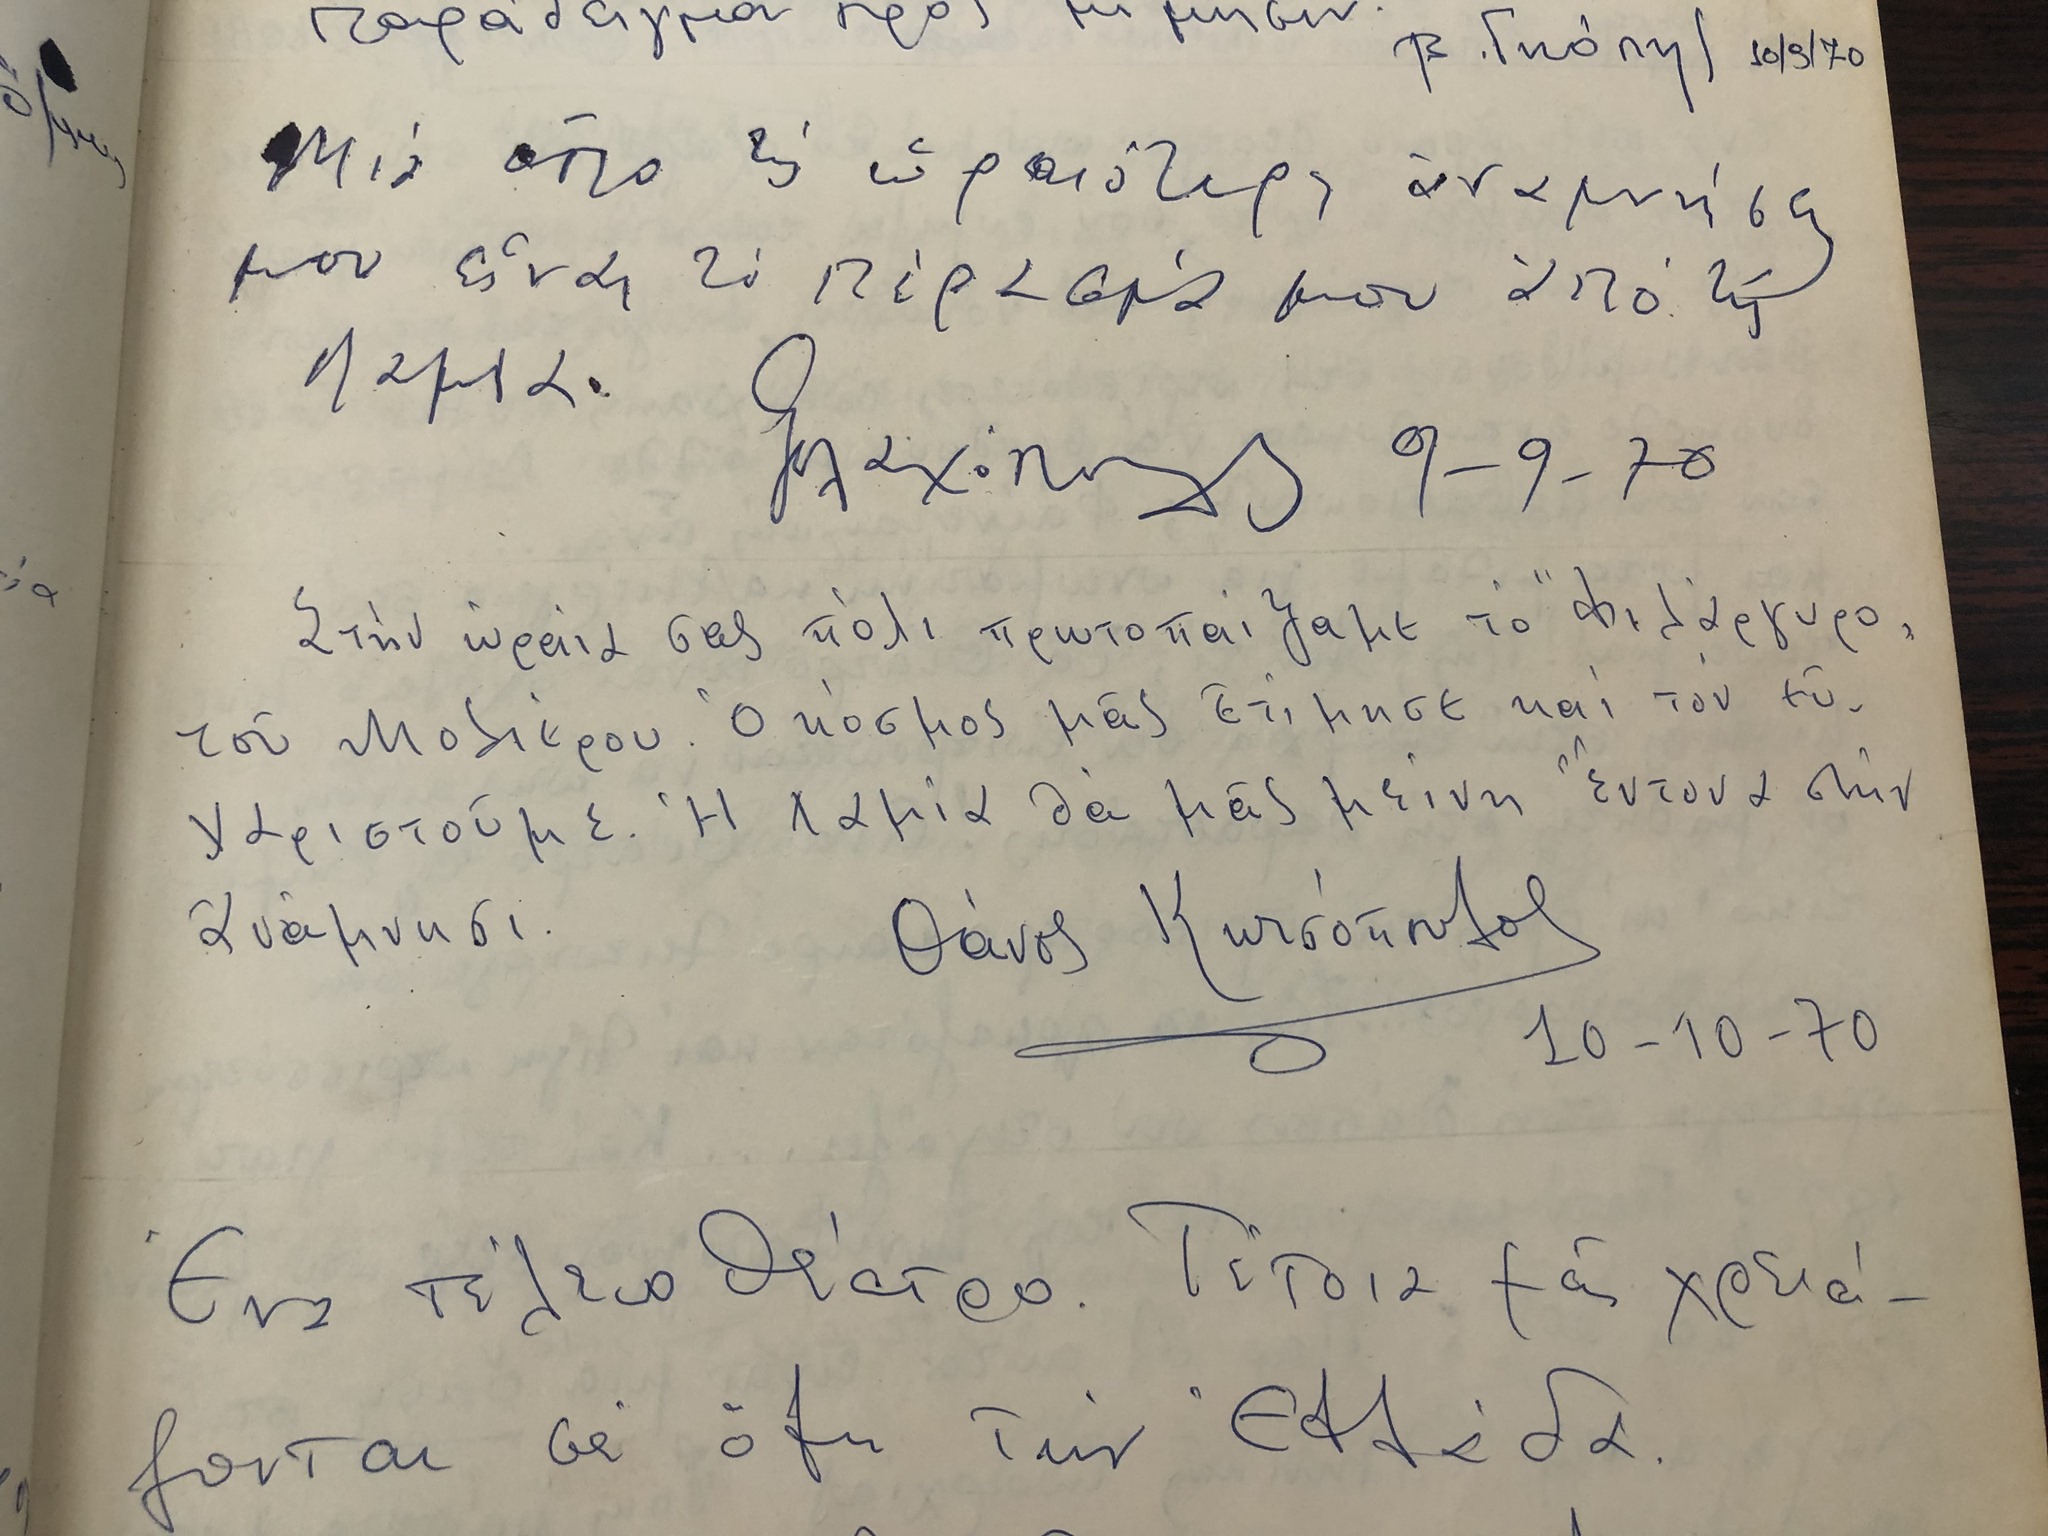 παράδειγμα πρὸς μίμησιν.
10/9/70
Μιά ἀπο τίς ὡραιότερες ἀναμνήσεις
μου εἶναι τό πέρασμά μου ἀπό τή
Λαμία.
9-9-70
Στήν ὡραία σας πόλι πρωτοπαίξαμε τό "Φιλάργυρο„
τοῦ Μολιέρου. Ὁ κόσμος μᾶς ἐτίμησε καί τόν εὐ-
χαριστοῦμε. Ἡ Λαμία θά μᾶς μείνη ἔντονα στήν
ἀνάμνησι.
Θάνος Κωτσόπουλος
10-10-70
Ἕνα τέλειο θέατρο. Τέτοια μᾶς χρειά-
ζονται σέ ὅλη τήν Ἑλλάδα.